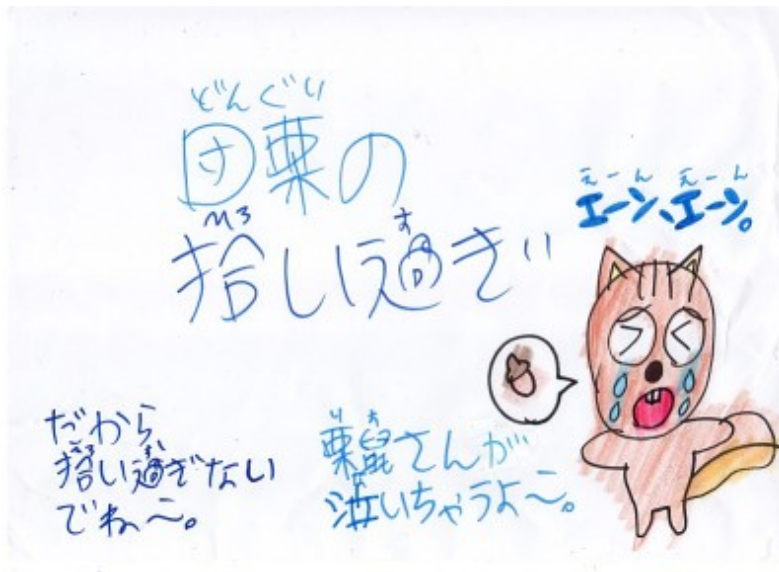 どんぐり
団栗の
ひろ す
拾い過ぎ
えーん えーん
エーン、エーン。
だから
ひろ す
拾い過ぎない
でね〜。
り す
栗鼠さんが
な
泣いちゃうよ〜。